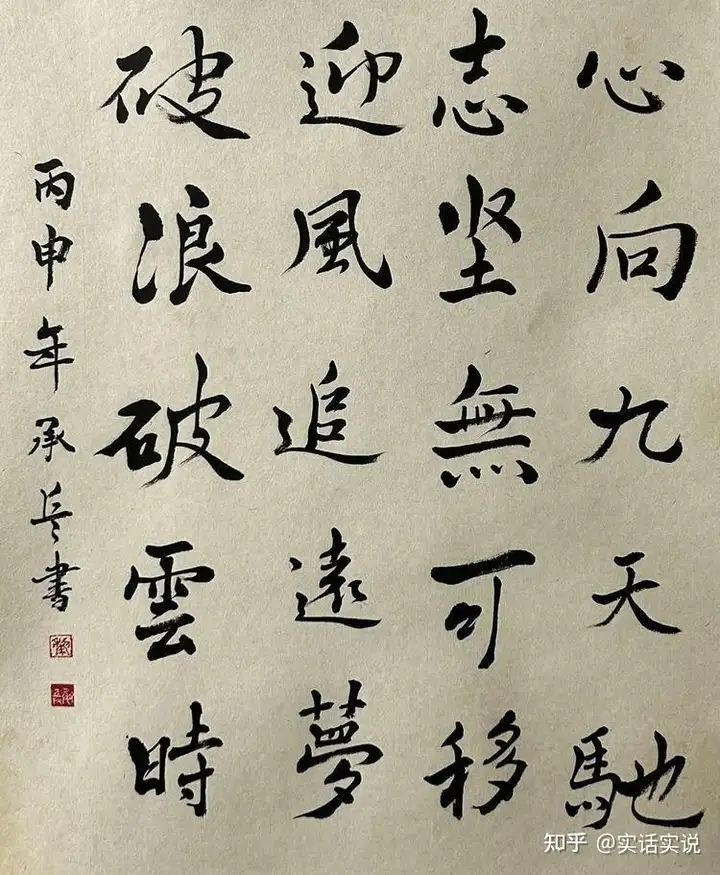 心向九天馳
志坚無可移
迎風追遠夢
破浪破雲時
丙申年承兵書
知乎 @实话实说